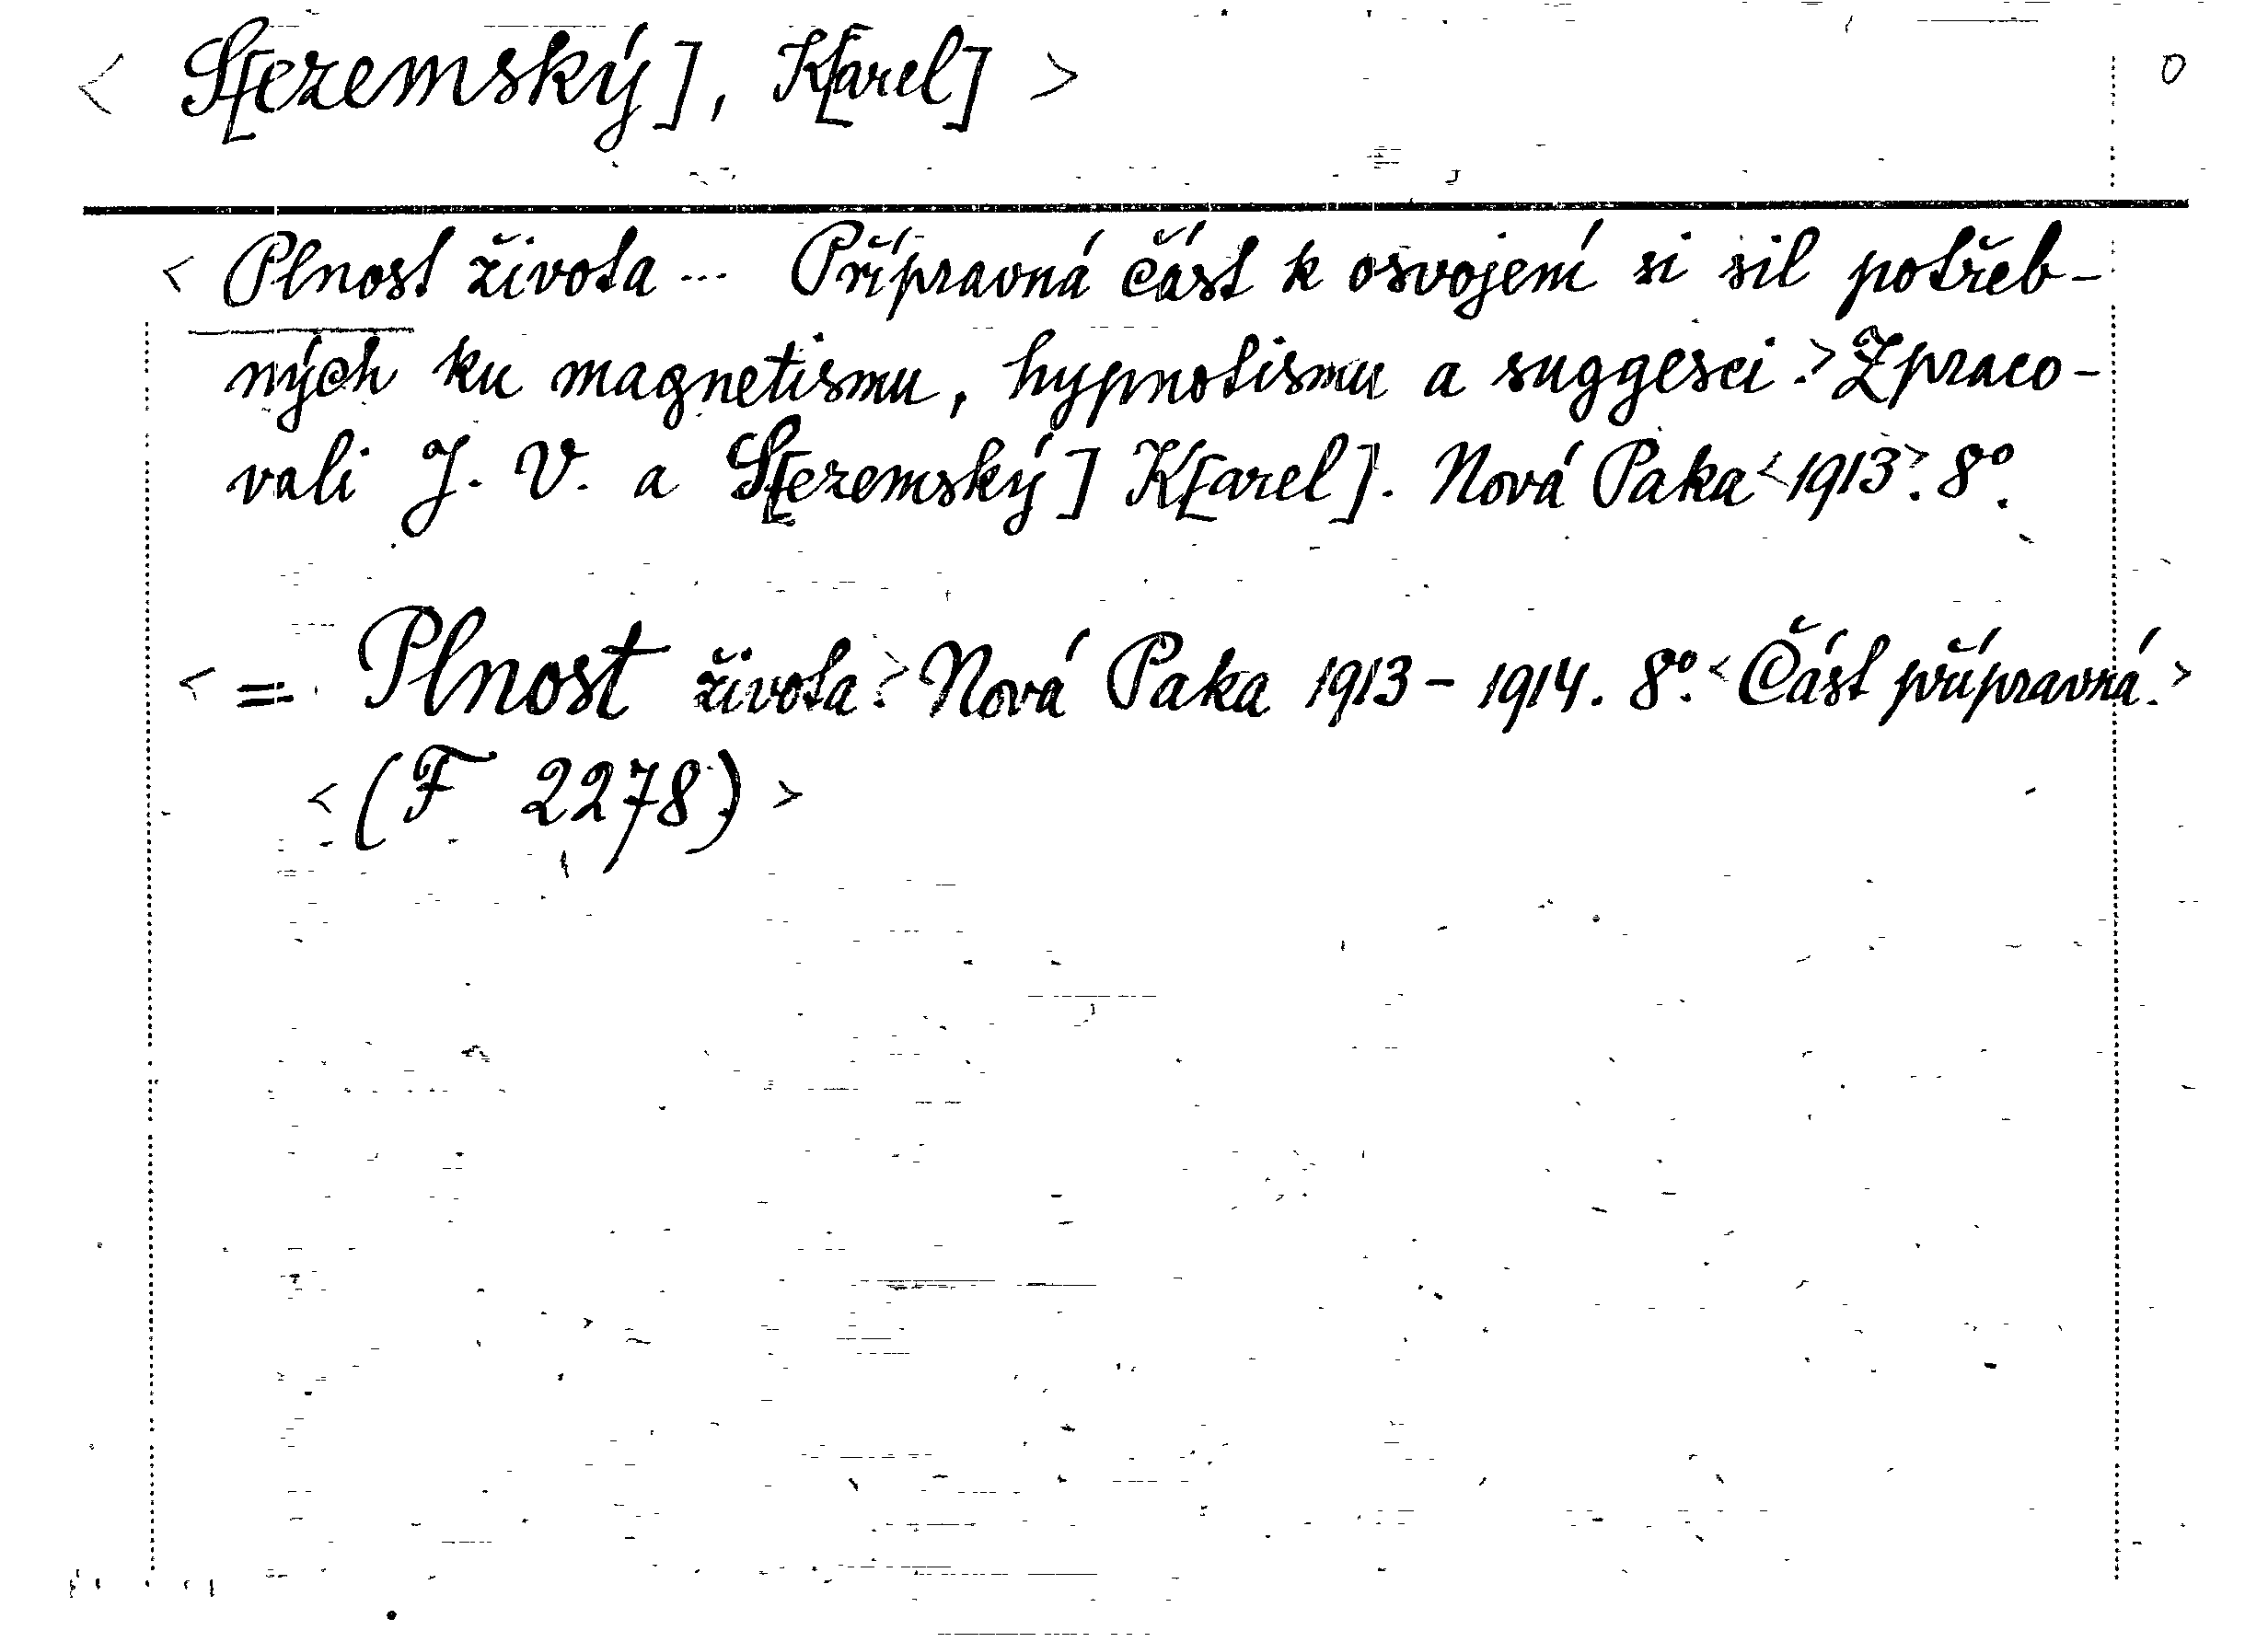 < S[ezemský], K[arel] > 0
< Plnost života ... Přípravná část k osvojení si sil potřeb-
ných ku magnetismu, hypnotismu a suggesci.> Zpraco-
vali J. V. a S[ezemský] K[arel]. Nová Paka <1913>. 8°.
< = Plnost života.> Nová Paka 1913-1914. 8°. < Část přípravná.>
< (F 2278) >